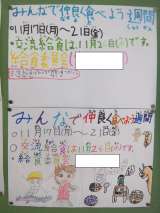 みんなで仲良く食べよう週間
○11月17日(月)～21日(金)
・交流給食は、11月21日(金)です。
給食委員会
みんなで仲良く食べよう週間
○11月17日(月)～21日(金)
○交流給食は11月21日(金)です
給食委員会